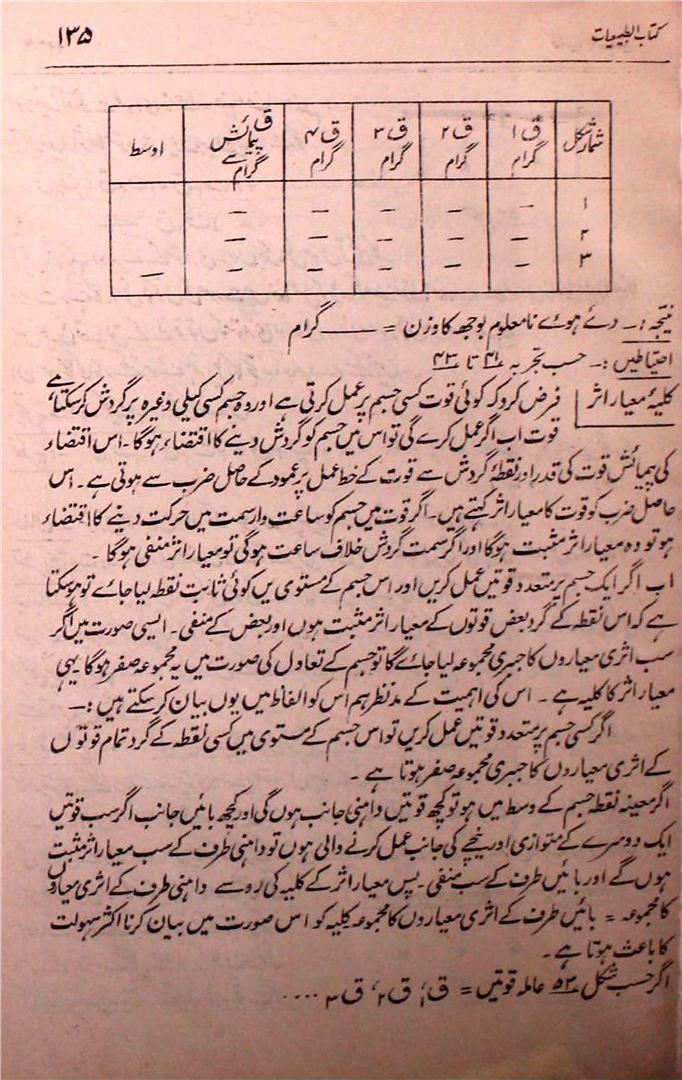 کتاب الطبیعیات
۱۳۵
شمار شکل | ق۱ گرام | ق۲ گرام | ق۳ گرام | ق۴ گرام | ق پیمائش سے گرام | اوسط
۱ — — — — —
۲ — — — — —
۳ — — — — — —
نتیجہ :۔ دئے ہوئے نامعلوم بوجھ کا وزن = —— گرام
احتیاطیں :۔ حسب تجربہ ۴۱ تا ۴۳
کلیۂ معیار اثر | فرض کرو کہ کوئی قوت کسی جسم پر عمل کرتی ہے اور وہ جسم کسی کیلی وغیرہ پر گردش کرسکتا ہے
قوت اب اگر عمل کرے گی تو اس میں جسم کو گردش دینے کا اقتضاء ہوگا۔ اس اقتضاء
کی پیمائش قوت کی قدر اور نقطۂ گردش سے قوت کے خط عمل پر عمود کے حاصل ضرب سے ہوتی ہے۔ اس
حاصل ضرب کو قوت کا معیار اثر کہتے ہیں۔ اگر قوت میں جسم کو ساعت وار سمت میں حرکت دینے کا اقتضاء
ہو تو وہ معیار اثر مثبت ہوگا اور اگر سمت گردش خلاف ساعت ہوگی تو معیار اثر منفی ہوگا ۔
اب اگر ایک جسم پر متعدد قوتیں عمل کریں اور اس جسم کے مستوی میں کوئی ثابت نقطہ لیا جائے تو ہوسکتا
ہے کہ اس نقطہ کے گرد بعض قوتوں کے معیار اثر مثبت ہوں اور بعض کے منفی۔ ایسی صورت میں اگر
سب اثری معیاروں کا جبری مجموعہ لیا جائے گا تو جسم کے تعادل کی صورت میں یہ مجموعہ صفر ہوگا۔ یہی
معیار اثر کا کلیہ ہے ۔ اس کی اہمیت کے مدنظر ہم اس کو الفاظ میں یوں بیان کرسکتے ہیں :۔
اگر کسی جسم پر متعدد قوتیں عمل کریں تو اس جسم کے مستوی میں کسی نقطہ کے گرد تمام قوتوں
کے اثری معیاروں کا جبری مجموعہ صفر ہوتا ہے ۔
اگر معینہ نقطہ جسم کے وسط میں ہو تو کچھ قوتیں داہنی جانب ہوں گی اور کچھ بائیں جانب اگر سب قوتیں
ایک دوسرے کے متوازی اور نیچے کی جانب عمل کرنے والی ہوں تو داہنی طرف کے سب معیار اثر مثبت
ہوں گے اور بائیں طرف کے سب منفی۔ پس معیار اثر کے کلیہ کی رو سے داہنی طرف کے اثری معیاروں
کا مجموعہ = بائیں طرف کے اثری معیاروں کا مجموعہ کلیہ کو اس صورت میں بیان کرنا اکثر سہولت
کا باعث ہوتا ہے ۔
اگر حسب شکل ۵۳ عاملہ قوتیں = ق۱، ق۲، ق۳ ....